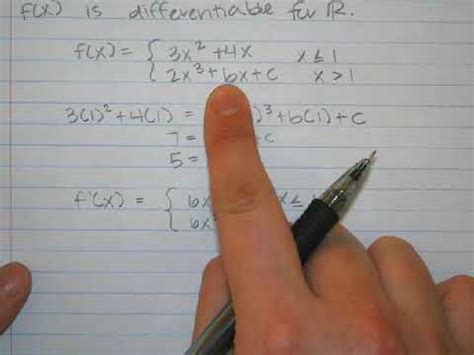 f(x) is differentiable for ℝ.
f(x) = { 3x² + 4x x ≤ 1
2x³ + bx + c x > 1
3(1)² + 4(1) = )³ + b(1) + c
7 = + c
5 =
f'(x) = { 6x x ≤
6x